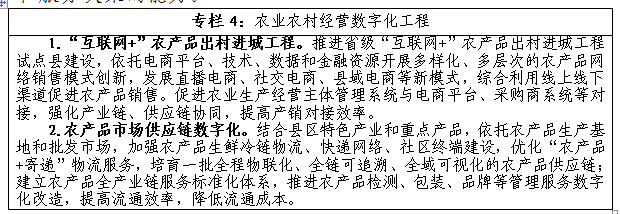 专栏 4：农业农村经营数字化工程
1.“互联网+”农产品出村进城工程。推进省级“互联网+”农产品出村进城工程
试点县建设，依托电商平台、技术、数据和金融资源开展多样化、多层次的农产品网
络销售模式创新，发展直播电商、社交电商、县域电商等新模式，综合利用线上线下
渠道促进农产品销售。促进农业生产经营主体管理系统与电商平台、采购商系统等对
接，强化产业链、供应链协同，提高产销对接效率。
2.农产品市场供应链数字化。结合县区特色产业和重点产品，依托农产品生产基
地和批发市场，加强农产品生鲜冷链物流、快递网络、社区终端建设，优化“农产品
+寄递”物流服务，培育一批全程物联化、全链可追溯、全域可视化的农产品供应链；
建立农产品全产业链服务标准化体系，推进农产品检测、包装、品牌等管理服务数字
化改造，提高流通效率，降低流通成本。